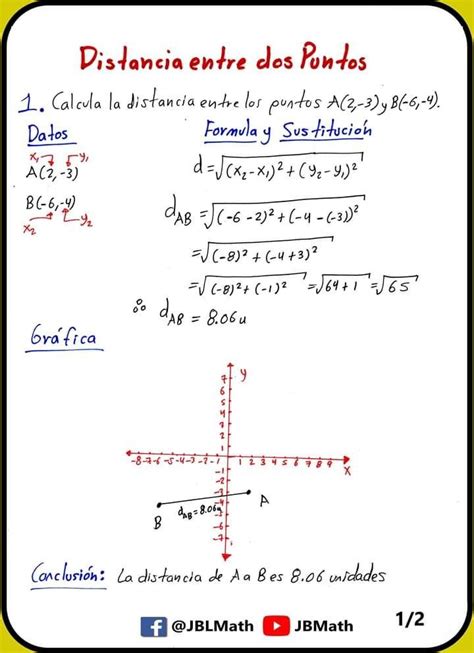 Distancia entre dos Puntos
1. Calcula la distancia entre los puntos A(2,-3) y B(-6,-4).
Datos
Formula y Sustitución
x₁ y₁
A(2,-3)
B(-6,-4)
x₂ y₂
d=√(x₂-x₁)²+(y₂-y₁)²
dAB=√(-6-2)²+(-4-(-3))²
=√(-8)²+(-4+3)²
=√(-8)²+(-1)² =√64+1 =√65
∴ dAB = 8.06u
Gráfica
y
7
6
5
4
3
2
1
-8 -7 -6 -5 -4 -3 -2 -1 1 2 3 4 5 6 7 8 9
x
-1
-2
-5
-6
-7
A
B
dAB=8.06u
Conclusión: La distancia de A a B es 8.06 unidades
@JBLMath JBMath 1/2